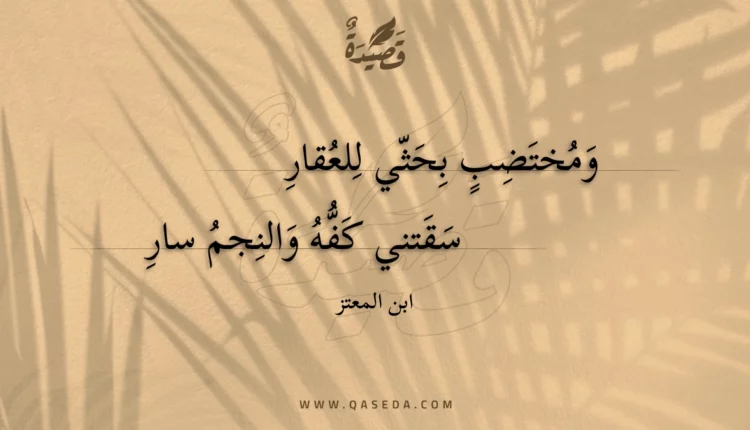 قَصِيْدَةٌ
وَمُختَضِبٍ بِحَثّي لِلعُقارِ
سَقَتني كَفُّهُ وَالنِجمُ سارِ
ابن المعتز
WWW.QASEDA.COM